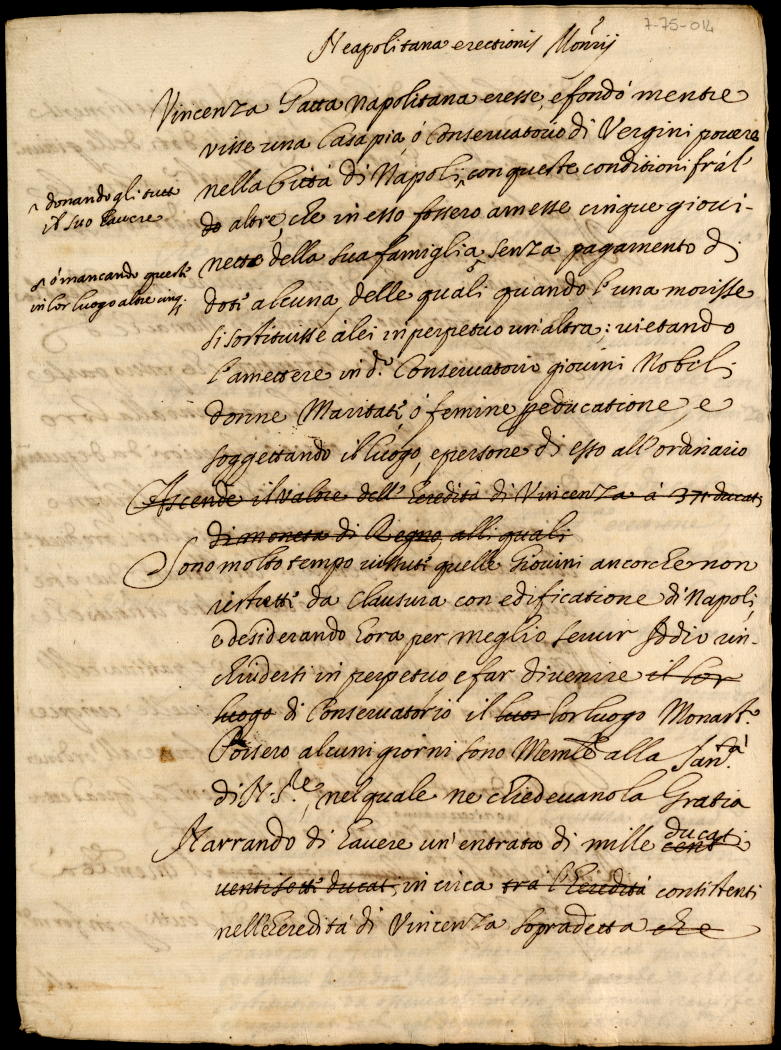 7-75-014
Neapolitana erectionis Mon.rij
Vincenza Gatta Napolitana eresse, e fondò mentre
visse una Casa pia, ò Conservatorio di Vergini povere
nella Città di Napoli, ^ con queste conditioni frà l'
^ donando gli tutt
il suo havere
do altre, che in esso fossero amesse cinque giovi-
nette della sua famiglia, senza pagamento di
^ ò mancando queste
in lor luogo altre cinq.
dote alcuna, delle quali quando l'una morisse
si sostituisse à lei in perpetuo un'altra; vietando
l'amettere in d.º Conservatorio giovini Nobili
donne Maritate, ò femine p educatione, e
soggettando il luogo, e persone di esso all'ordinario
Ascende il valore dell'Heredità di Vincenza à 37 ducati
di moneta di Regno, alli quali
Sono molto tempo vissute quelle Giovini ancorche non
ristrette da clausura con edificatione di Napoli,
e desiderando hora per meglio servir Iddio rin-
chiudersi in perpetuo, e far divenire il lor
luogo di Conservatorio il luog lor luogo Monast.º
Porsero alcuni giorni sono Mem.le alla San.tà
di N. S.re, nel quale ne chiedevano la Gratia
Narrando di havere un'entrata di mille ducati
cent
venti sette ducati, in circa tra l'Heredità consistenti
nell'heredità di Vincenza sopradetta che